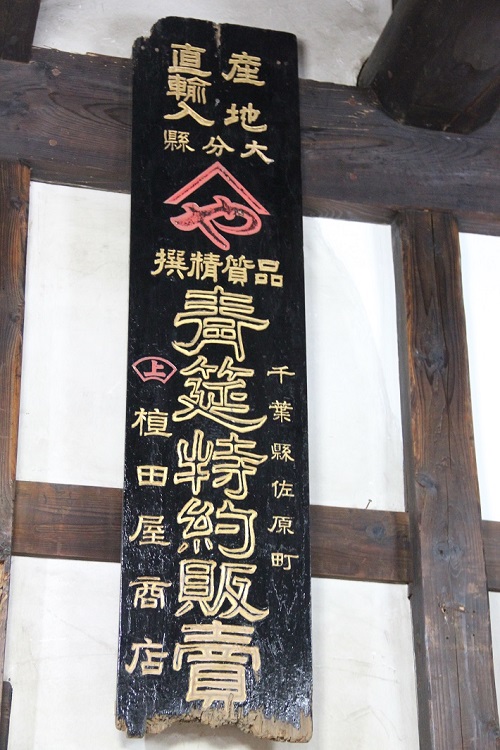 産地
直輸入
大分縣
や
品質精撰
青筵特約販賣
千葉縣佐原町
上
植田屋商店